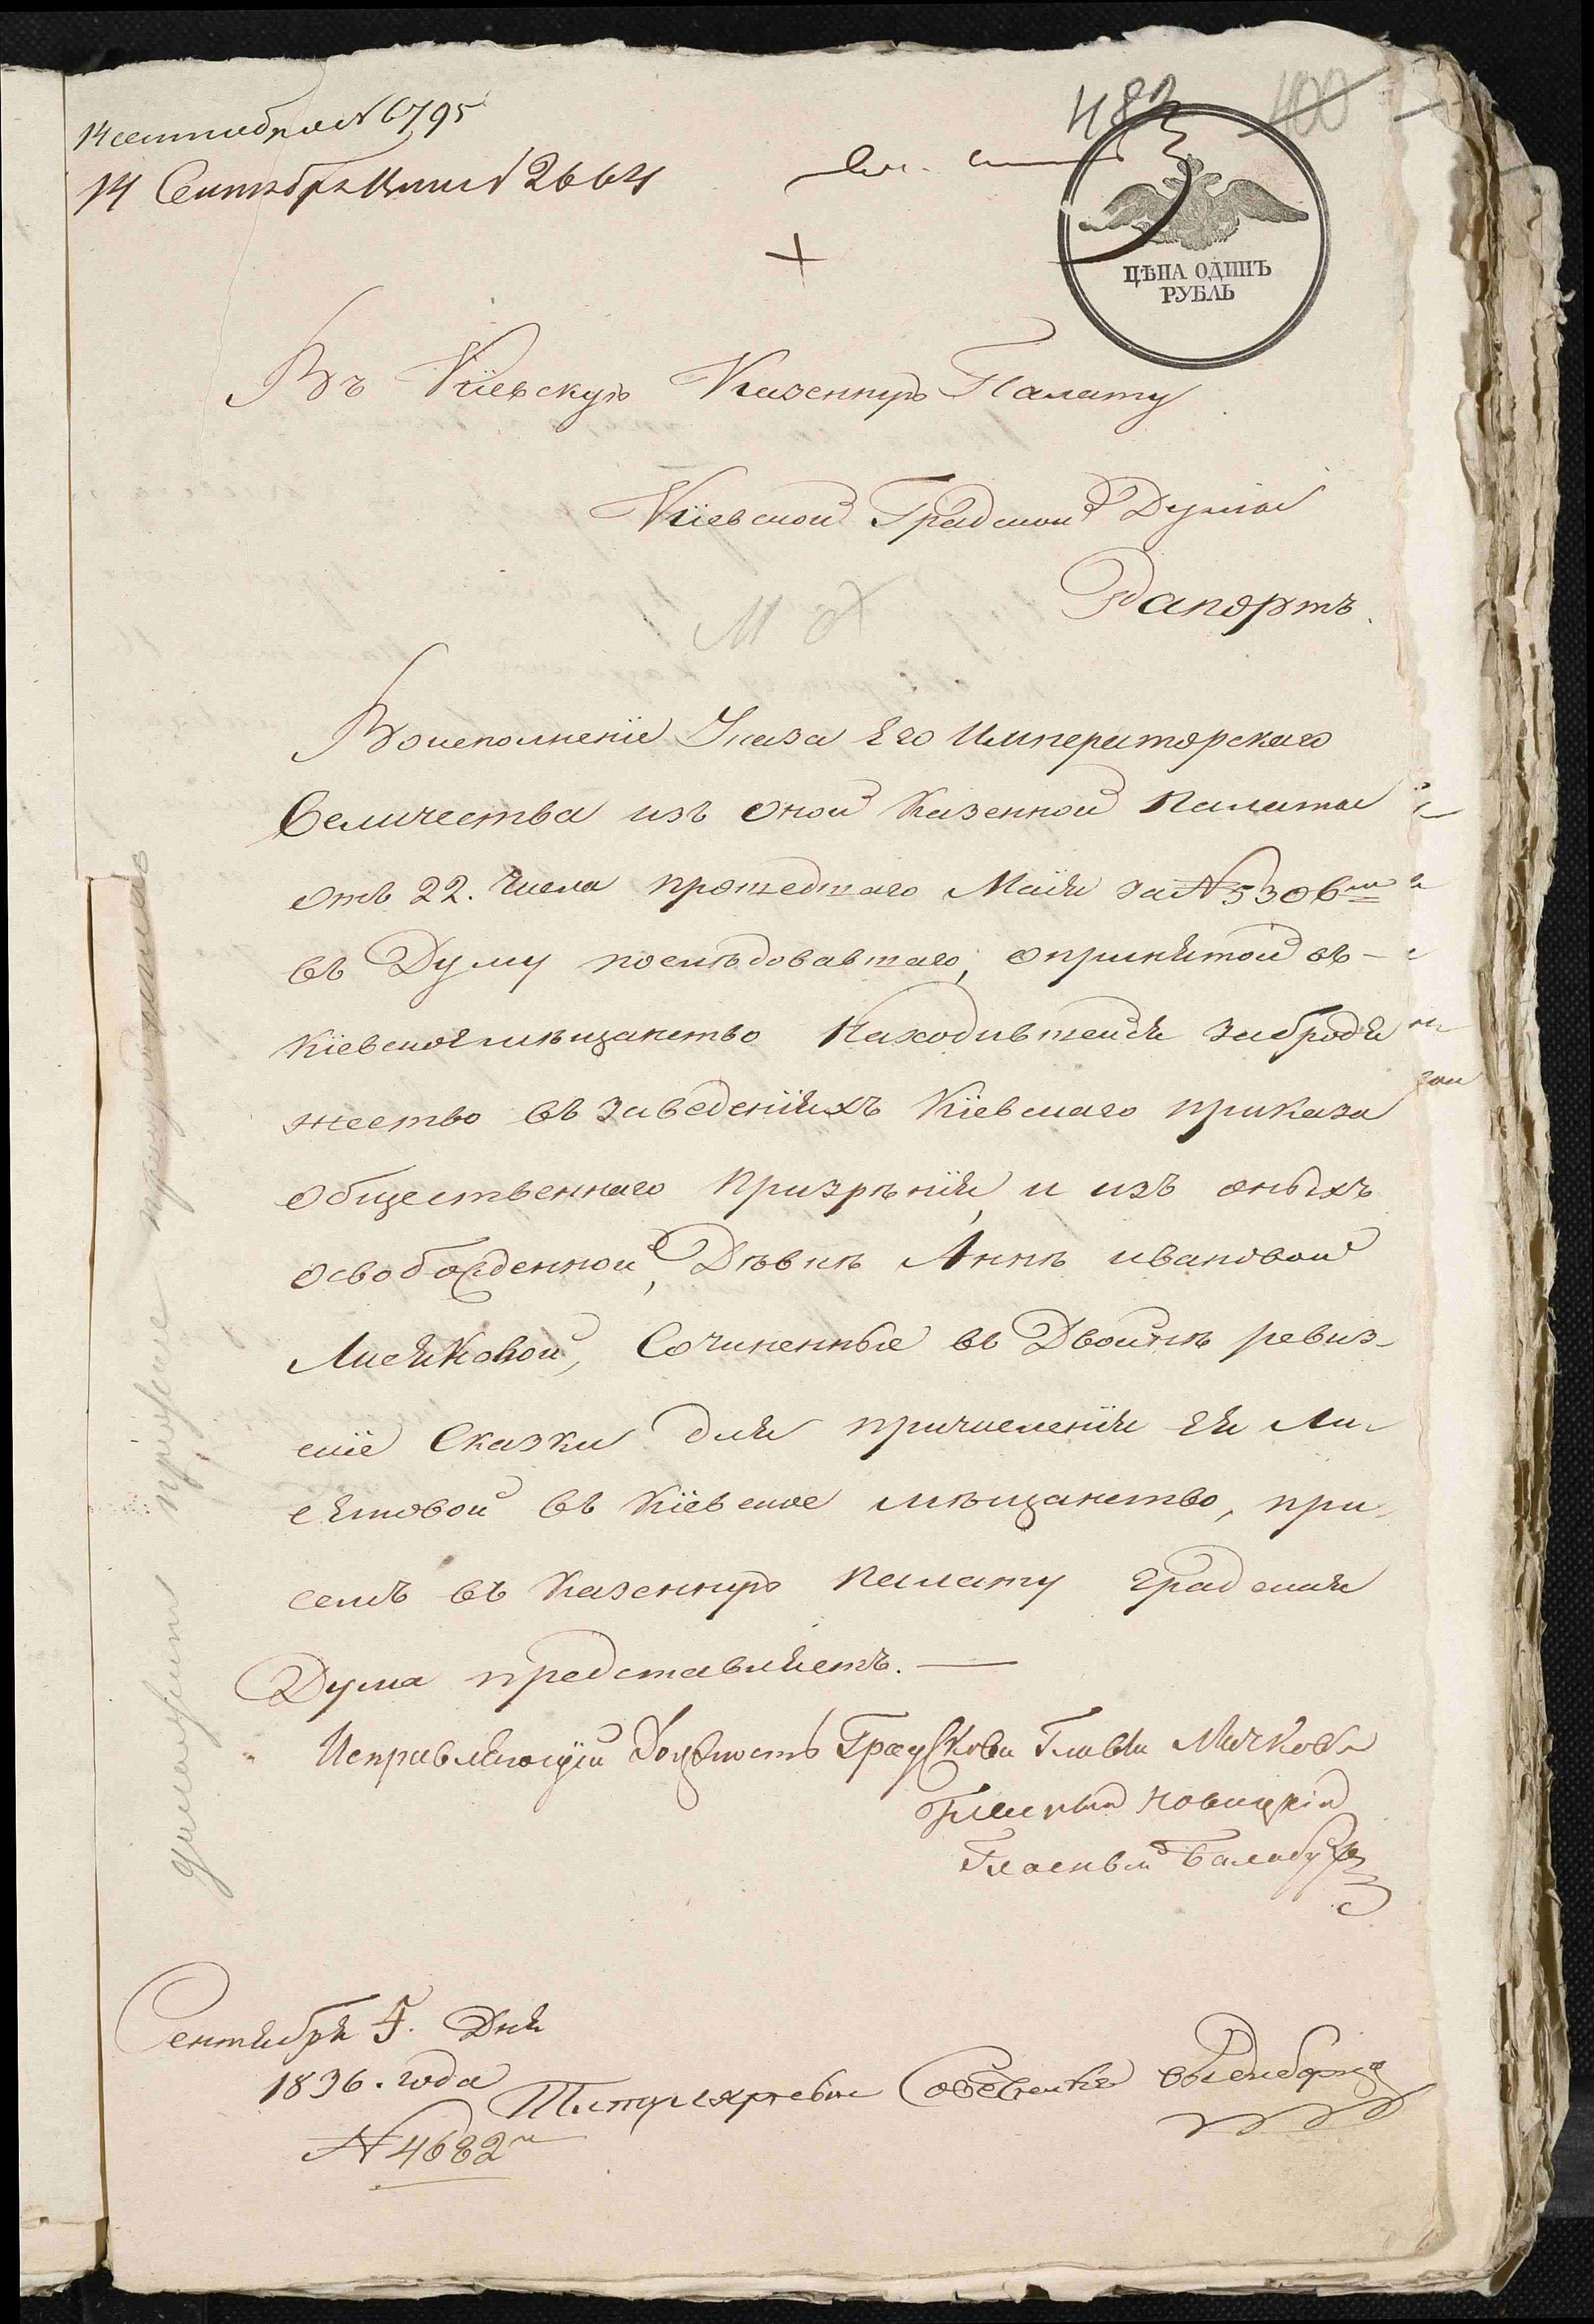 14 сентября N 6795
14 Сентября N 2664
483
400
ЦѢНА ОДИНЪ
РУБЛЬ
Въ Кіевскую Казенную Палату
Кіевской Градской Думы
Рапортъ.
Воисполненіе Указа Его Императорскаго
Величества изъ оной Казенной Палаты
отъ 22. числа прошедшаго Маія за N 5306мъ
въ Думу послѣдовавшаго, опринятой въ
Кіевское мѣщанство Находившейся забродя
жество въ заведеніяхъ Кіевскаго приказа
общественнаго призрѣнія, и изъ оныхъ
освобожденной, Дѣвкѣ Аннѣ ивановой
Лисяковой, Сочиненные въ Двойнѣ ревиз-
скіе Сказки для причисленія Ея Ли-
сяковой въ Кіевское мѣщанство, при
семъ въ Казенную Палату градская
Дума представляетъ.
Исправляющій Должность Градскова Главы Мачковъ
Гласный Новицкій
Гласный Балабу
Сентября 5. Дня
1836. года
N 4682
Титулярный Советникъ